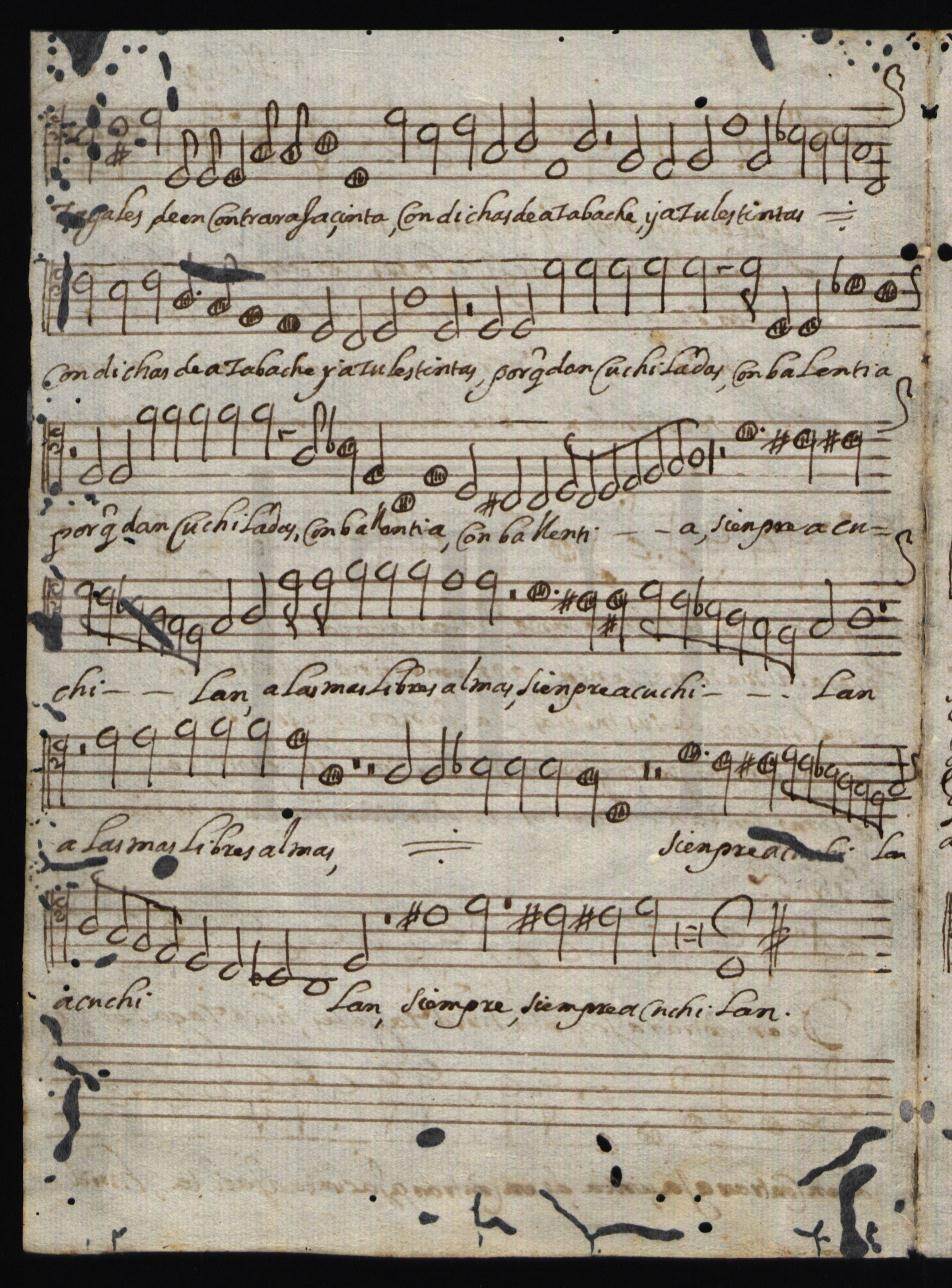 Zagales, de en Contrar a Jacinta, Con dichas de aZabache, y aZules tintas
Con dichas de aZabache y aZules tintas, porq̃ dan Cuchiladas, Con balentia
porq̃ dan Cuchiladas, Con ballentia, Con ballenti - - a, sienpre acu=
chi - - Lan, a las mas libres almas, sienpre acuchi - - - Lan
a las mas libres almas, sienpre acuchi Lan
acuchi Lan, siempre, siempre a Cuchi Lan.